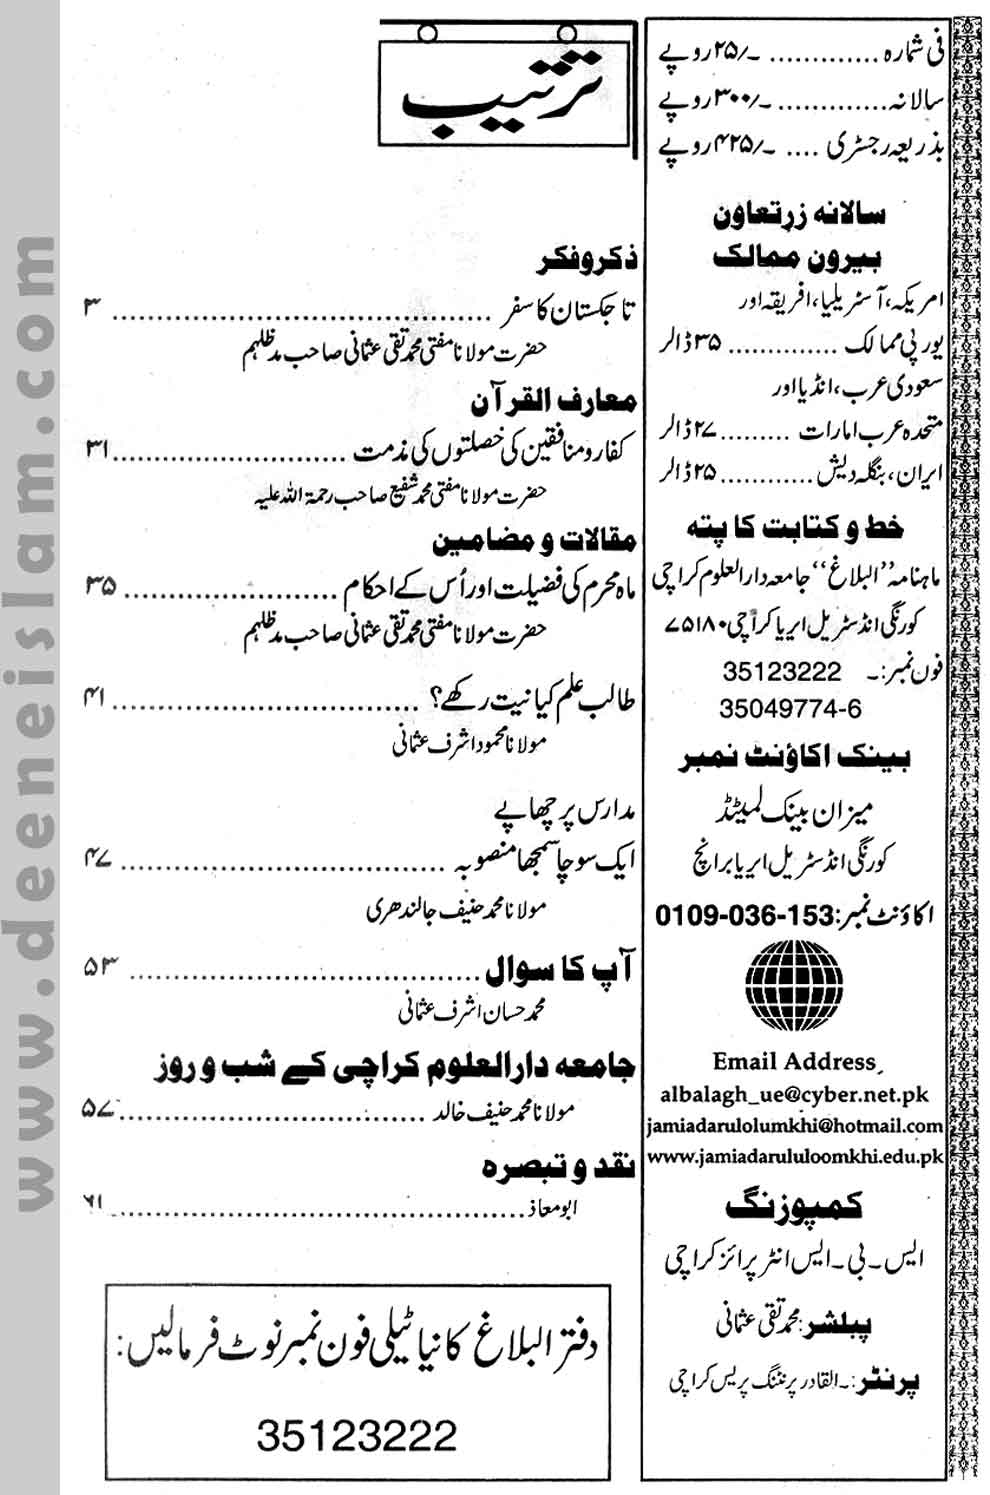 فی شمارہ ............. ـ/۲۵ روپے
سالانہ ............. ـ/۳۰۰ روپے
بذریعہ رجسٹری .... ـ/۴۲۵ روپے
سالانہ زرتعاون
بیرون ممالک
امریکہ، آسٹریلیا، افریقہ اور
یورپی ممالک ............. ۳۵ ڈالر
سعودی عرب، انڈیا اور
متحدہ عرب امارات ......... ۲۷ ڈالر
ایران، بنگلہ دیش ............ ۲۵ ڈالر
خط و کتابت کا پتہ
ماہنامہ "البلاغ" جامعہ دارالعلوم کراچی
کورنگی انڈسٹریل ایریا کراچی ۷۵۱۸۰
فون نمبر:۔ 35123222
35049774-6
بینک اکاؤنٹ نمبر
میزان بینک لمیٹڈ
کورنگی انڈسٹریل ایریا برانچ
اکاؤنٹ نمبر: 0109-036-153
Email Address
albalagh_ue@cyber.net.pk
jamiadarulolumkhi@hotmail.com
www.jamiadarululoomkhi.edu.pk
کمپوزنگ
ایس۔بی۔ایس انٹرپرائز کراچی
پبلشر: محمد تقی عثمانی
پرنٹر:۔ القادر پرنٹنگ پریس کراچی
ترتیب
ذکر و فکر
تاجکستان کا سفر ...................................... ۳
حضرت مولانا مفتی محمد تقی عثمانی صاحب مدظلہم
معارف القرآن
کفار و منافقین کی خصلتوں کی مذمت ........................ ۳۱
حضرت مولانا مفتی محمد شفیع صاحب رحمۃ اللہ علیہ
مقالات و مضامین
ماہ محرم کی فضیلت اور اُس کے احکام ...................... ۳۵
حضرت مولانا مفتی محمد تقی عثمانی صاحب مدظلہم
طالب علم کیا نیت رکھے؟ ............................... ۴۱
مولانا محمود اشرف عثمانی
مدارس پر چھاپے
ایک سوچا سمجھا منصوبہ ................................. ۴۷
مولانا محمد حنیف جالندھری
آپ کا سوال ................................... ۵۳
محمد حسان اشرف عثمانی
جامعہ دارالعلوم کراچی کے شب و روز
مولانا محمد حنیف خالد .................................. ۵۷
نقد و تبصرہ
ابو معاذ ......................................... ۶۱
دفتر البلاغ کا نیا ٹیلی فون نمبر نوٹ فرمالیں:
35123222
www.deeneislam.com